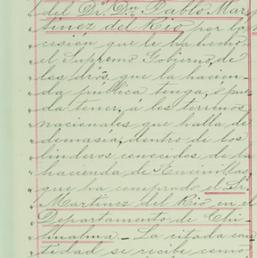 del Dr. Dn. Pablo Mar
tinez del Rio, por la
cision que le ha hecho
el Supremo Gobierno, de
los dros. que la hacien
da pública tenga, ó pue
da tener, á los terrenos
nacionales que halla de
demasía, dentro de los
linderos conocidos de la
hacienda de Encinillas
que ha comprado el Sr.
Martinez del Rio en el
Departamento de Chi
huahua. La citada can
tidad se recibe como